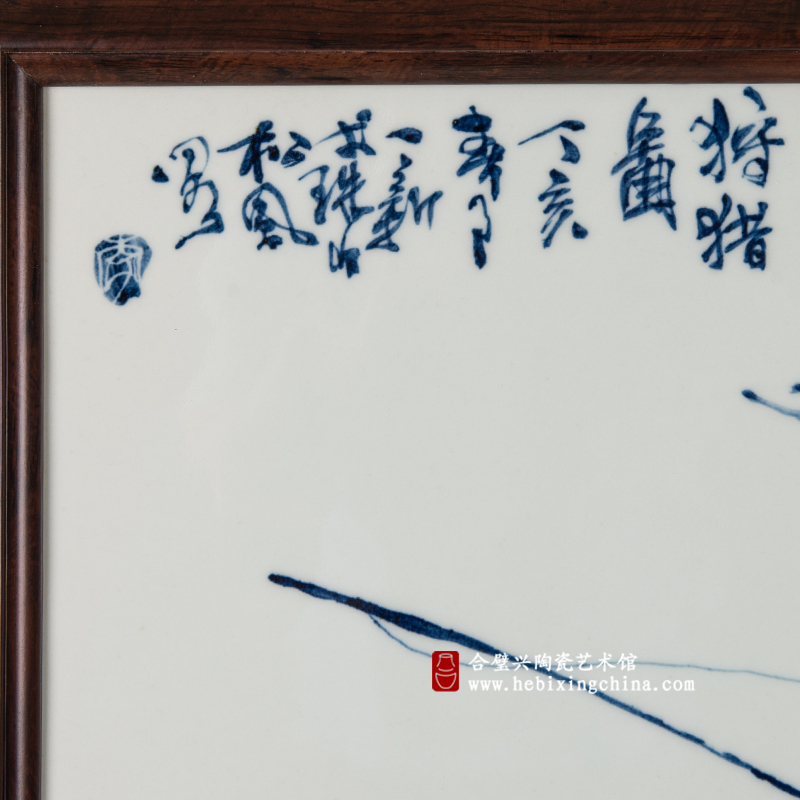 狩猎
图
丁亥
春月
一新
于珠山
松风
合璧兴陶瓷艺术馆
www.hebixingchina.com